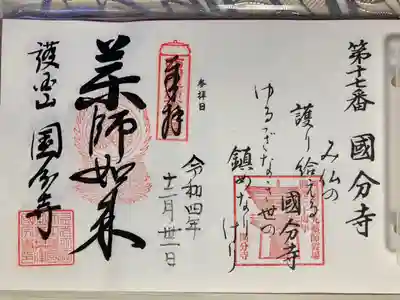 第十七番 國分寺
み仏の
護り給える
國分寺
ゆるぎなき世の
鎮めなり
けり
参拝日
奉拝
令和四年
十二月卅一日
薬師如来
護国山 国分寺